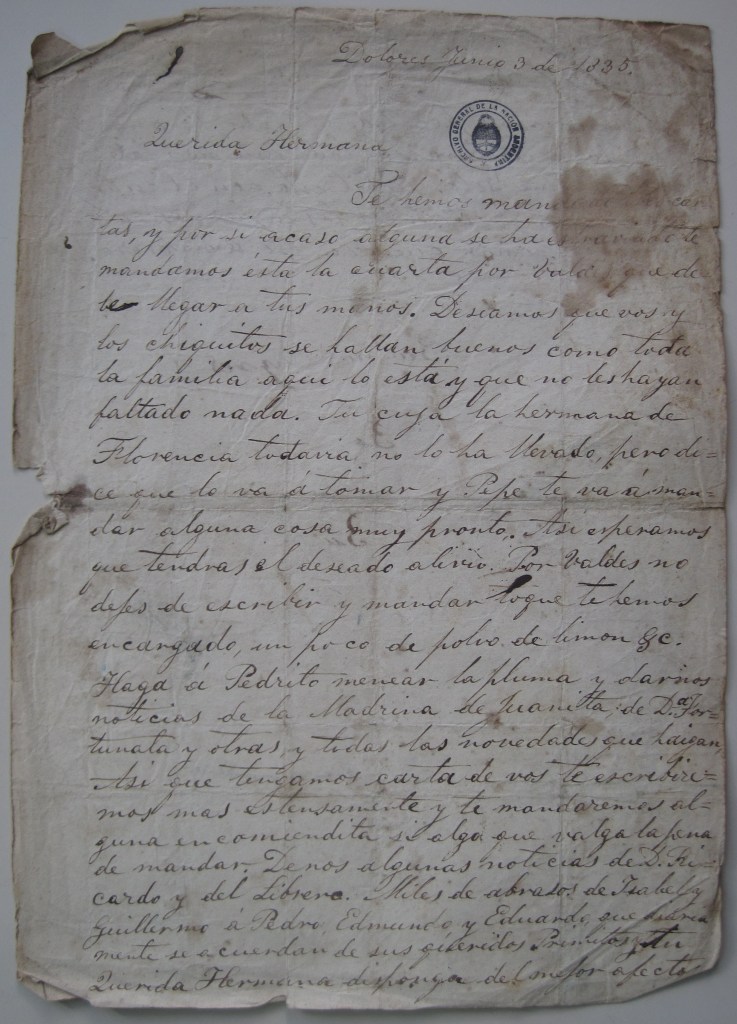 Dolores Junio 3 de 1835.
ARCHIVO GENERAL DE LA NACION ARGENTINA
Querida Hermana
Te hemos car-
tas, y por si acaso alguna se ha te
mandamos ésta la cuarta por Valdes que de
be llegar a tus manos. Deseamos que vos y
los chiquitos se hallan buenos como toda
la familia aqui lo está y que no les hayan
faltado nada. Tu cuja la hermana de
Florencia todavia no lo ha llevado, pero di-
ce que lo va á tomar y Pepe te va á man-
dar alguna cosa muy pronto. Asi esperamos
que tendras el deseado alivio. Por Valdes no
defes de escribir y mandar loque te hemos
encargado, un poco de polvo de limon &c.
Haga á Pedrito menear la pluma y darnos
noticias de la Madrina de Juanita, de D.ª For-
tunata y otras, y todas las novedades que haigan.
Asi que tengamos carta de vos te escribire-
mos mas estensamente y te mandaremos al-
guna encomiendita si algo que valga la pena
de mandar. Denos algunas noticias de D. Ri-
cardo y del Librero. Miles de abrasos de Isabel y
Guillermo á Pedro, Edmundo y Eduardo, que
mente se acuerdan de sus queridos Primitos, y tu
Querida Hermana disponga del mejor afecto